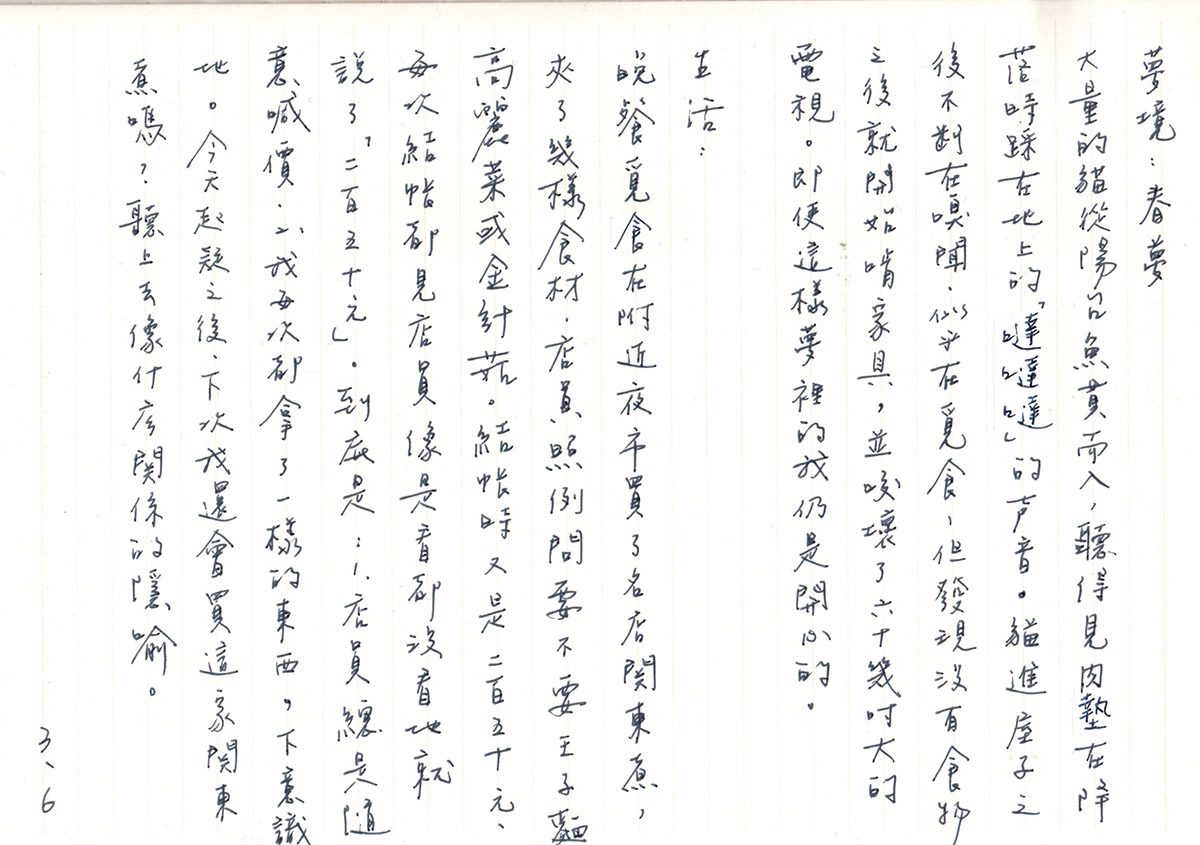 夢境：春夢
大量的貓從陽台魚貫而入，聽得見肉墊在降
落時踩在地上的「噠噠噠」的声音。貓進屋子之
後不断在嗅聞，似乎在覓食，但發現没有食物
之後就開始啃家具，並咬壞了六十幾吋大的
電視。即使這樣夢裡的我仍是開心的。
生活：
晚餐覓食在附近夜市買了名店関東煮，
夾了幾樣食材，店員照例問要不要王子麵
高麗菜或金針菇。結帳時又是二百五十元、
每次結帳都見店員像是看都没看地就
說了「二百五十元」。到底是：1.店員總是隨
意喊價．2.我每次都拿了一樣的東西。下意識
地。今天起疑之後，下次我還會買這家関東
煮嗎？聽上去像什麼関係的隱喻。
3、6